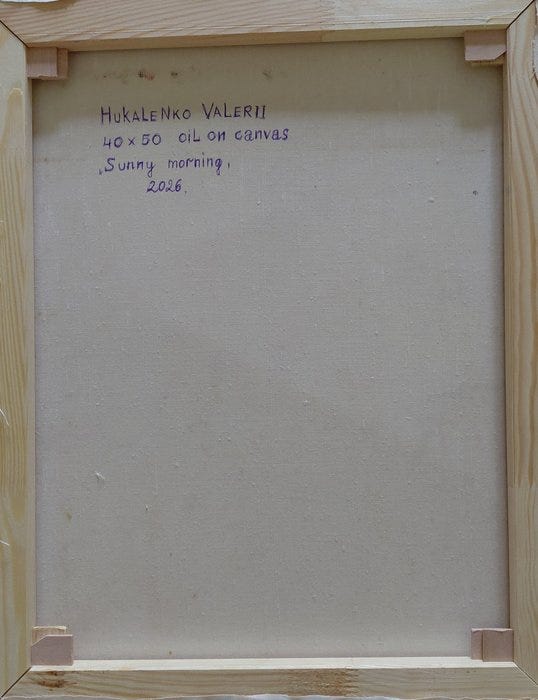 HUKALENKO VALERII
40 x 50 oil on canvas
„Sunny morning,
2026.